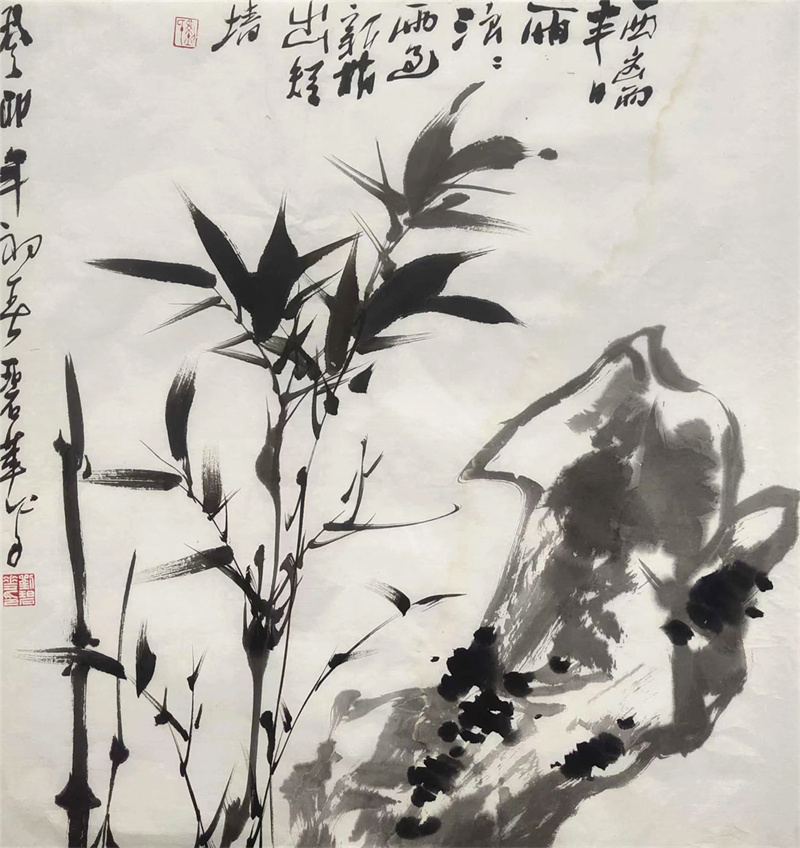 西窗
半日
雨
浪〻
雨过
新梢
出短
墙
癸卯年初春碧華